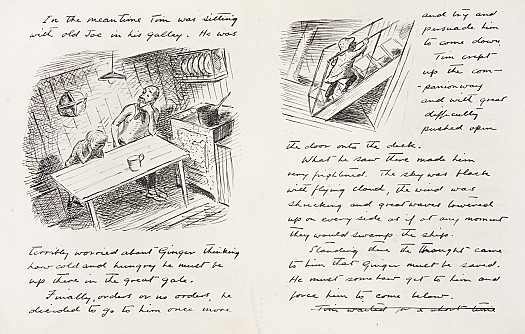 In the meantime Tom was sitting
with old Joe in his galley. He was
terribly worried about Ginger thinking
how cold and hungry he must be
up there in the great gale.
Finally, orders or no orders, he
decided to go to him once more
and try and
persuade him
to come down
Tom crept
up the com-
-panionway
and with great
difficulty
pushed open
the door onto the deck.
What he saw there made him
very frightened. The sky was black
with flying cloud, the wind was
shrieking and great waves towered
up on every side as if at any moment
they would swamp the ship.
Standing there the thought came
to him that Ginger must be saved.
He must somehow get to him and
force him to come below.
Tom waited for a short time